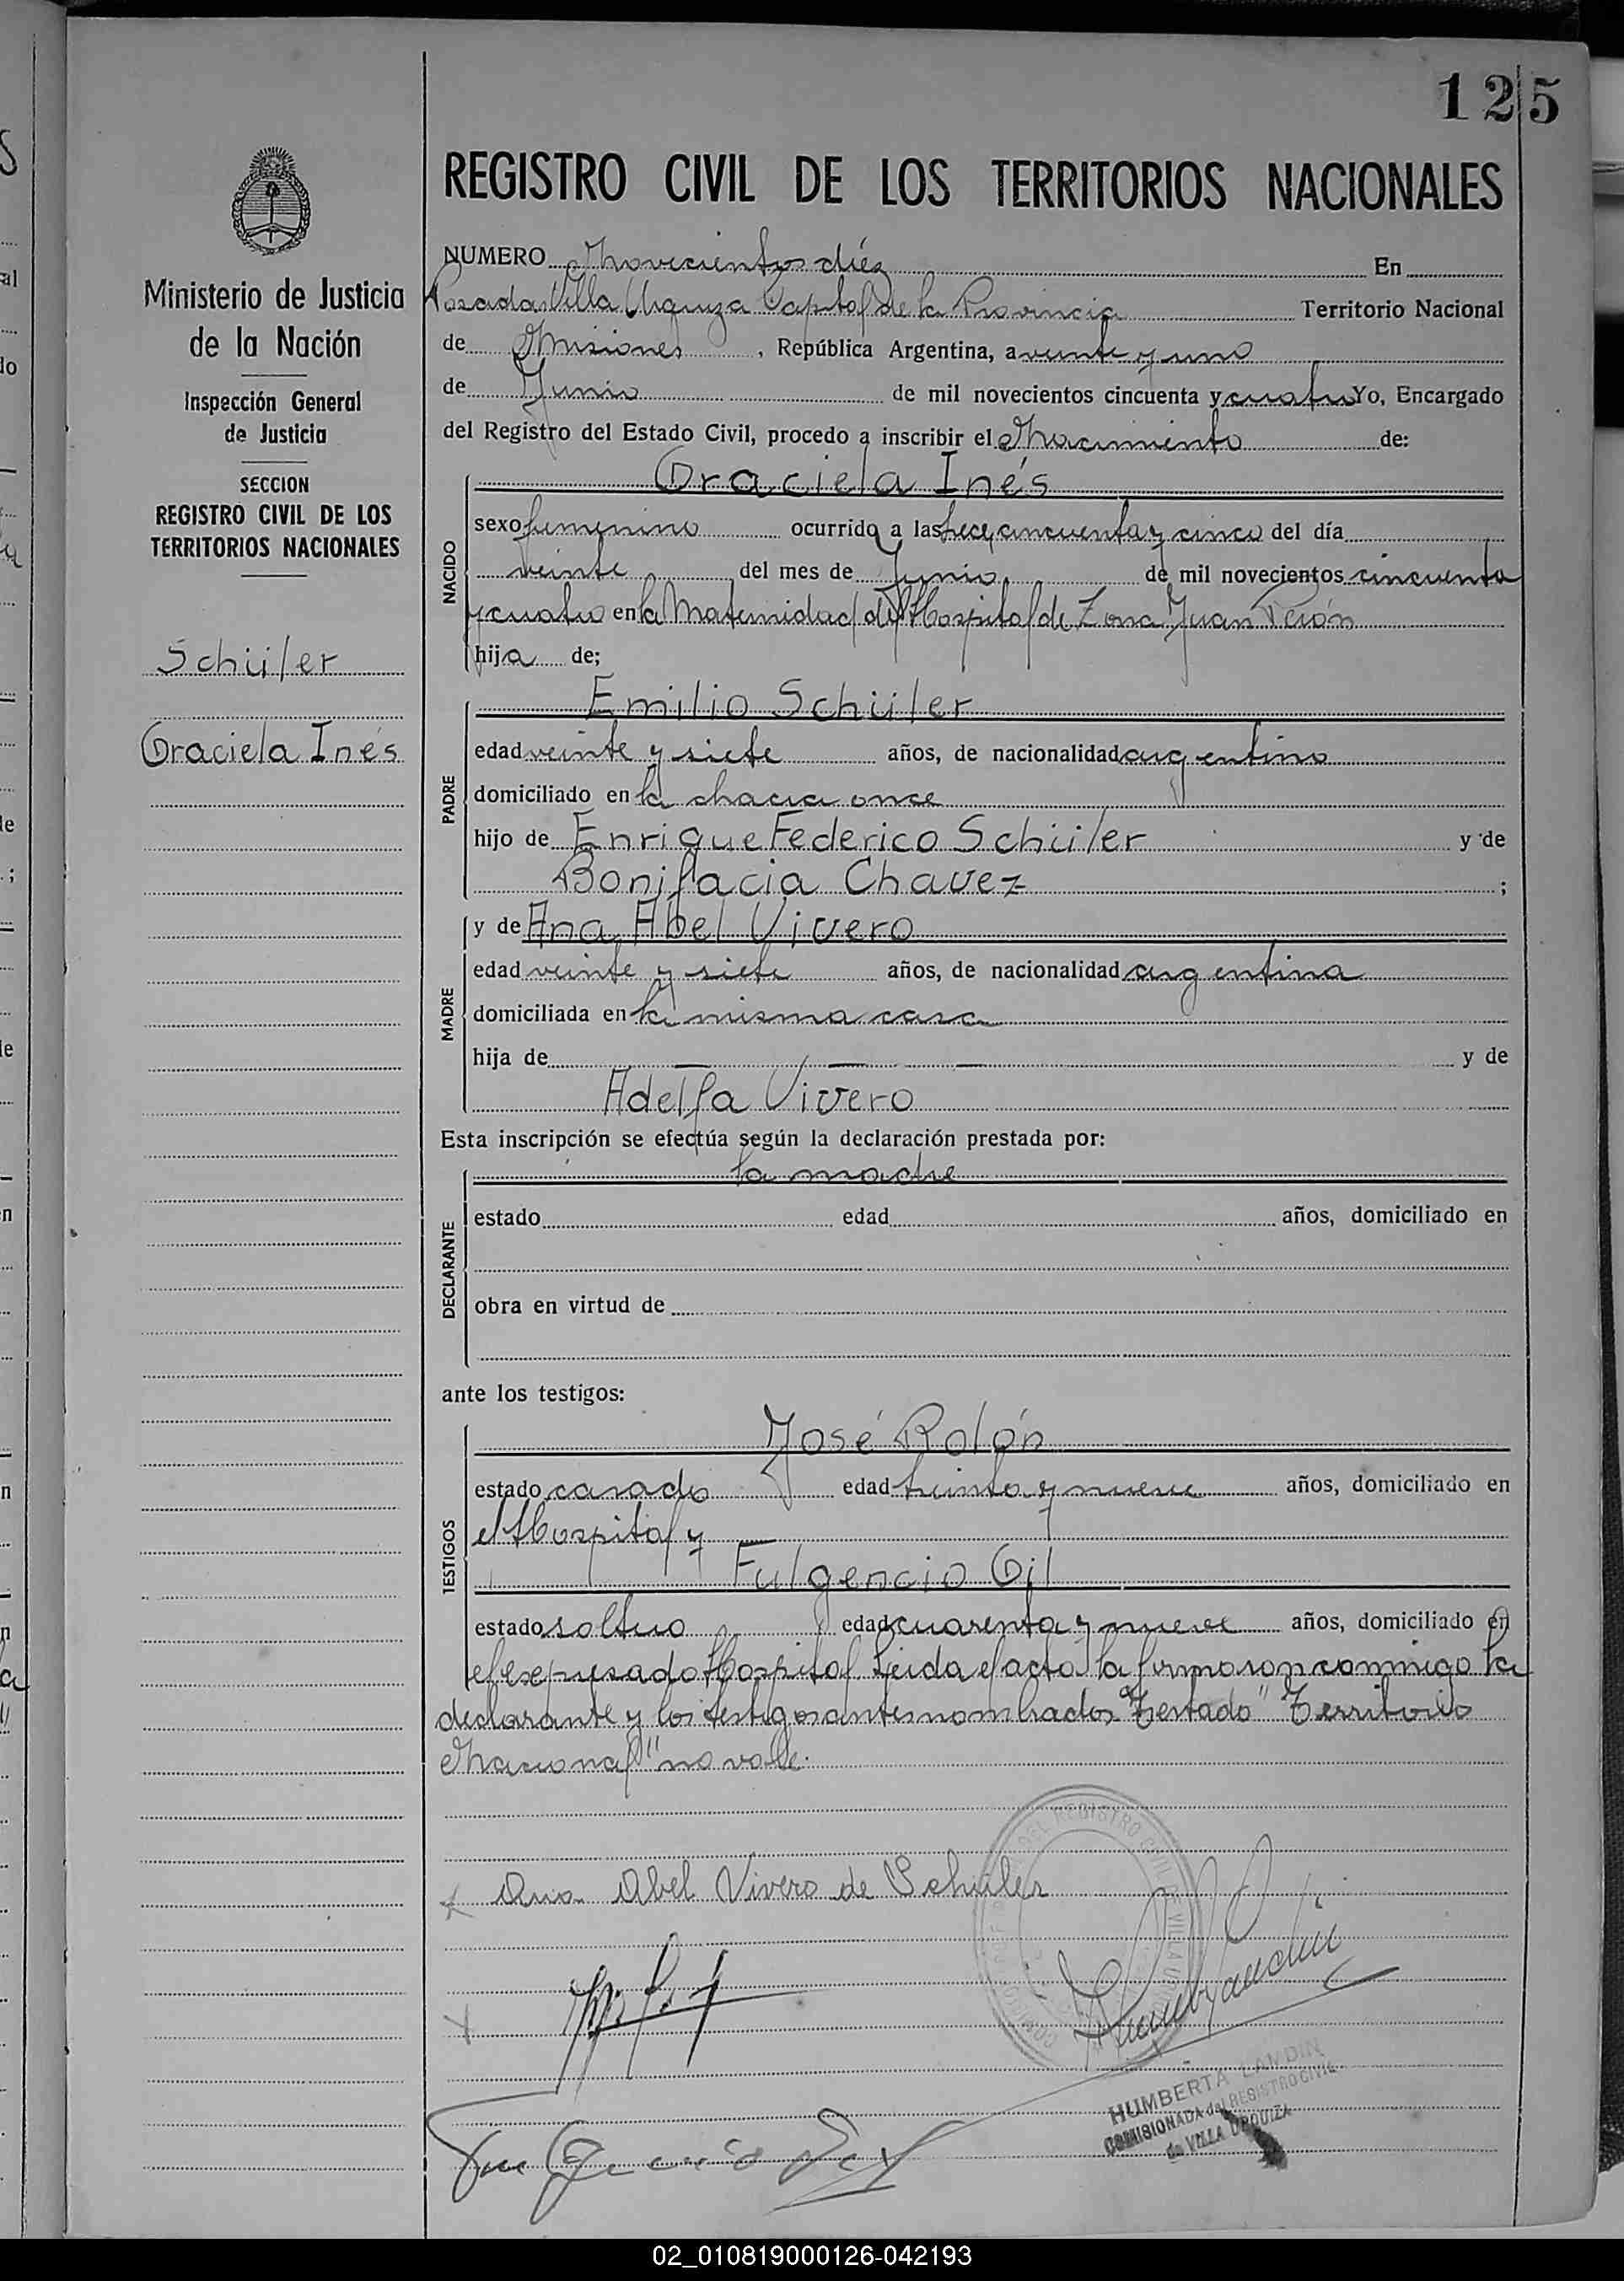 125
REGISTRO CIVIL DE LOS TERRITORIOS NACIONALES
Ministerio de Justicia
de la Nación
Inspección General
de Justicia
SECCION
REGISTRO CIVIL DE LOS
TERRITORIOS NACIONALES
Schüler
Graciela Inés
NUMERO Novecientos diéz En
Posadas Villa Urquiza Capital de la Provincia Territorio Nacional
de Misiones, República Argentina, a veinte y uno
de Junio de mil novecientos cincuenta y cuatro Yo, Encargado
del Registro del Estado Civil, procedo a inscribir el Nacimiento de:
Graciela Inés
NACIDO
sexo femenino ocurrido a las trece, cincuenta y cinco del día
veinte del mes de Junio de mil novecientos cincuenta
y cuatro en la Maternidad del Hospital de Zona Juan Perón
hija de;
Emilio Schüler
PADRE
edad veinte y siete años, de nacionalidad argentino
domiciliado en la chacra once
hijo de Enrique Federico Schüler y de
Bonifacia Chavez ;
y de Ana Abel Vivero
MADRE
edad veinte y siete años, de nacionalidad argentina
domiciliada en la misma casa
hija de — — — y de
Adelfa Vivero
Esta inscripción se efectúa según la declaración prestada por:
la madre
DECLARANTE
estado edad años, domiciliado en
obra en virtud de
ante los testigos:
José Rolón
TESTIGOS
estado casado edad treinta y nueve años, domiciliado en
el Hospital y
Fulgencio Gil
estado soltero edad cuarenta y nueve años, domiciliado en
el expresado Hospital Leida el acta la firmaron conmigo la
declarante y los testigos antes nombrados. Testado "Territorio
Nacional" no vale.
Ana Abel Vivero de Schuler
Fulgencio Gil
HUMBERTA LANDIN
COMISIONADA del REGISTRO CIVIL
de VILLA URQUIZA
02_010819000126-042193